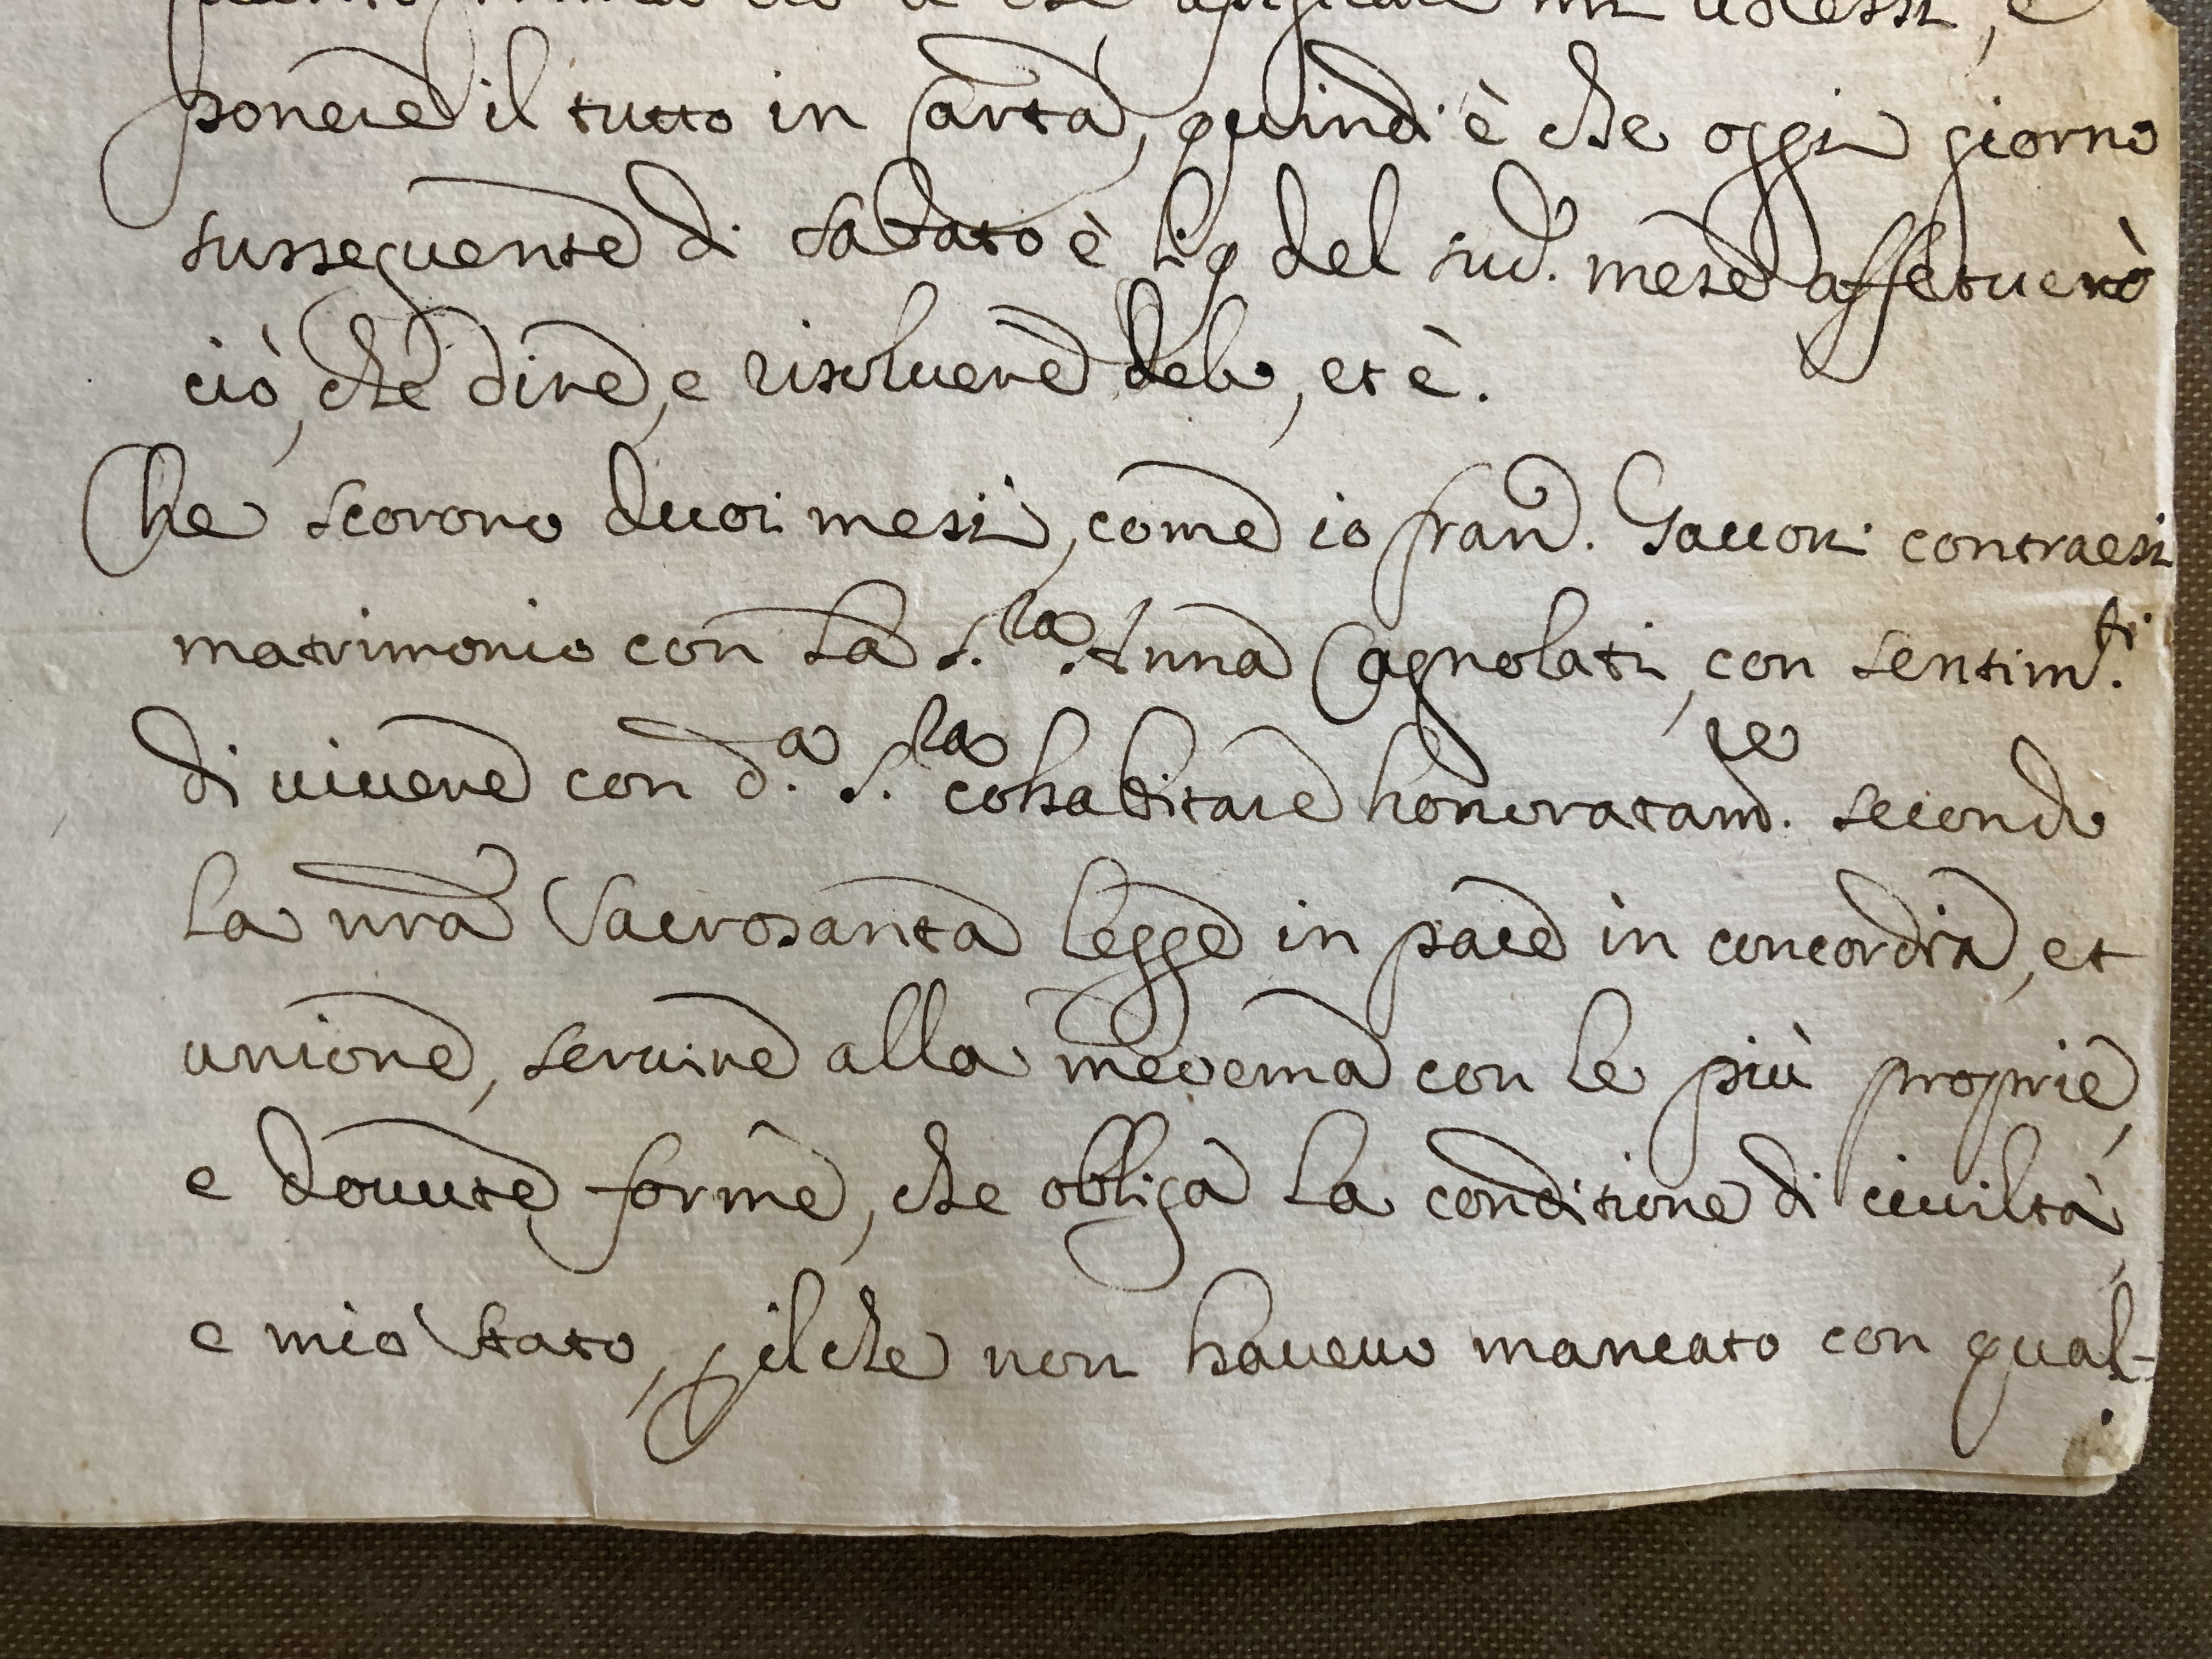 ponere il tutto in Carta, quindi è che oggi giorno
susseguente di Sabato è li 9 del sud. mese affetuerò
ciò, che dire, e risoluere debo, et è.
Che scorono duoi mesi, come io Fran. contraesi
matrimonio con la S.ra Anna Cagnolati, con sentim.ti
di uiuere con d.a S.ra cohabitare honoratam.te secondo
la nra Sacrosanta legge in pace in concordia, et
unione, seruire alla medema con le più proprie,
e douute forme, che obliga la conditione di ciuiltà,
e mio stato, p ilche non haueuo mancato con qual-